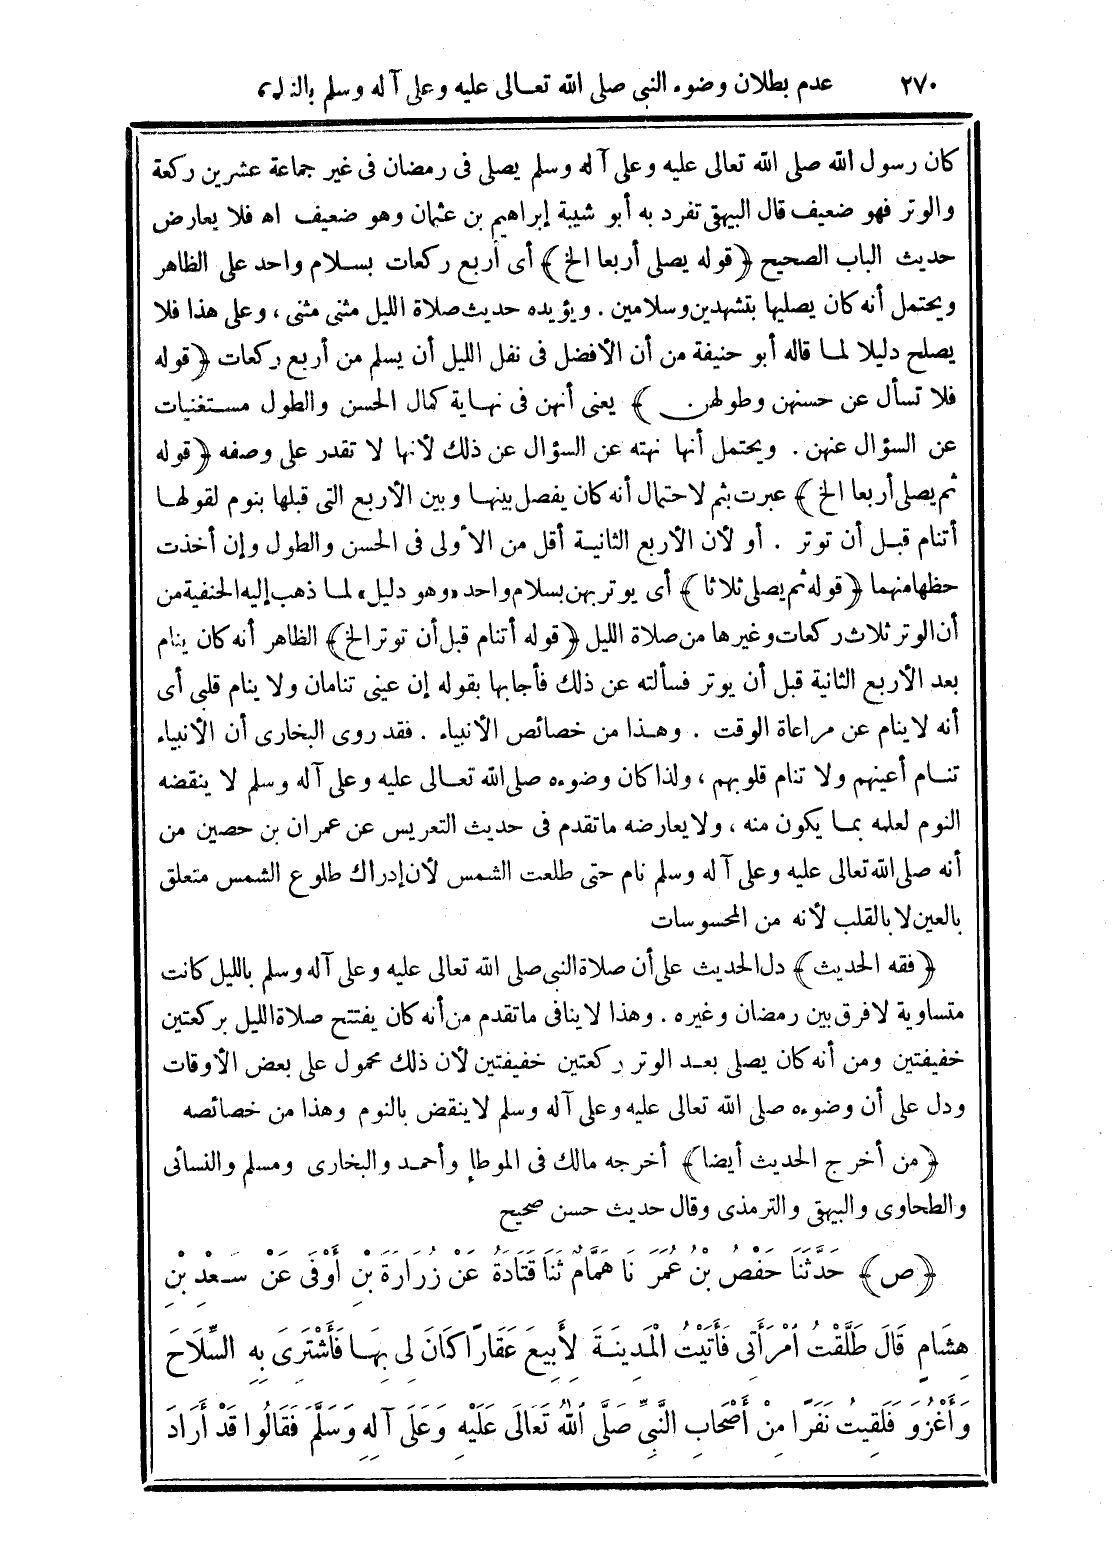 ٢٧٠ عدم بطلان وضوء النبى صلى الله تعالى عليه وعلى آله وسلم بالنوم
كان رسول الله صلى الله تعالى عليه وعلى آله وسلم يصلى فى رمضان فى غير جماعة عشرين ركعة
والوتر فهو ضعيف قال البيهقى تفرد به أبو شيبة إبراهيم بن عثمان وهو ضعيف اه فلا يعارض
حديث الباب الصحيح ﴿قوله يصلى أربعا الخ﴾ أى أربع ركعات بسلام واحد على الظاهر
ويحتمل أنه كان يصليها بتشهدين وسلامين . ويؤيده حديث صلاة الليل مثنى مثنى ، وعلى هذا فلا
يصلح دليلا لما قاله أبو حنيفة من أن الأفضل فى نفل الليل أن يسلم من أربع ركعات ﴿قوله
فلا تسأل عن حسنهن وطولهن﴾ يعنى أنهن فى نهاية كمال الحسن والطول مستغنيات
عن السؤال عنهن . ويحتمل أنها نهته عن السؤال عن ذلك لأنها لا تقدر على وصفه ﴿قوله
ثم يصلى أربعا الخ﴾ عبرت بثم لاحتمال أنه كان يفصل بينها وبين الأربع التى قبلها بنوم لقولها
أتنام قبل أن توتر . أو لأن الأربع الثانية أقل من الأولى فى الحسن والطول وإن أخذت
حظها منهما ﴿قوله ثم يصلى ثلاثا﴾ أى يوتر بهن بسلام واحد «وهو دليل» لما ذهب إليه الحنفية من
أن الوتر ثلاث ركعات وغيرها من صلاة الليل ﴿قوله أتنام قبل أن توتر الخ﴾ الظاهر أنه كان ينام
بعد الأربع الثانية قبل أن يوتر فسألته عن ذلك فأجابها بقوله إن عينى تنامان ولا ينام قلبى أى
أنه لا ينام عن مراعاة الوقت . وهذا من خصائص الأنبياء . فقد روى البخارى أن الأنبياء
تنام أعينهم ولا تنام قلوبهم ، ولذا كان وضوءه صلى الله تعالى عليه وعلى آله وسلم لا ينقضه
النوم لعلمه بما يكون منه ، ولا يعارضه ما تقدم فى حديث التعريس عن عمران بن حصين من
أنه صلى الله تعالى عليه وعلى آله وسلم نام حتى طلعت الشمس لأن إدراك طلوع الشمس متعلق
بالعين لا بالقلب لأنه من المحسوسات
﴿فقه الحديث﴾ دل الحديث على أن صلاة النبى صلى الله تعالى عليه وعلى آله وسلم بالليل كانت
متساوية لا فرق بين رمضان وغيره . وهذا لا ينافى ما تقدم من أنه كان يفتتح صلاة الليل بركعتين
خفيفتين ومن أنه كان يصلى بعد الوتر ركعتين خفيفتين لأن ذلك محمول على بعض الأوقات
ودل على أن وضوءه صلى الله تعالى عليه وعلى آله وسلم لا ينقض بالنوم وهذا من خصائصه
﴿من أخرج الحديث أيضا﴾ أخرجه مالك فى الموطإ وأحمد والبخارى ومسلم والنسائى
والطحاوى والبيهقى والترمذى وقال حديث حسن صحيح
﴿ص﴾ حَدَّثَنَا حَفْصُ بْنُ عُمَرَ نَا هَمَّامٌ ثَنَا قَتَادَةُ عَنْ زُرَارَةَ بْنِ أَوْفَى عَنْ سَعْدِ بْنِ
هِشَامٍ قَالَ طَلَّقْتُ امْرَأَتِى فَأَتَيْتُ الْمَدِينَةَ لِأَبِيعَ عَقَارًا كَانَ لِى بِهَا فَأَشْتَرِىَ بِهِ السِّلَاحَ
وَأَغْزُوَ فَلَقِيتُ نَفَرًا مِنْ أَصْحَابِ النَّبِىِّ صَلَّى اللهُ تَعَالَى عَلَيْهِ وَعَلَى آلِهِ وَسَلَّمَ فَقَالُوا قَدْ أَرَادَ